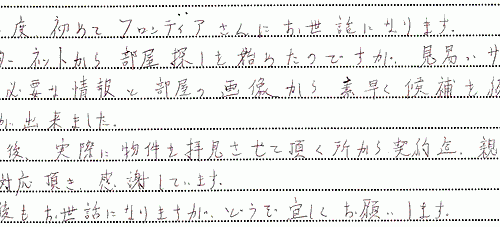 度 初めて フロンティアさんに お世話になります。
ネットから 部屋探しを始めたのですが、見易いサ
必要な情報と部屋の画像から 素早く候補を
が出来ました。
後、実際に物件を拝見させて頂く所から契約迄、親
対応頂き、感謝しています。
もお世話になりますが、どうぞ宜しくお願いします。